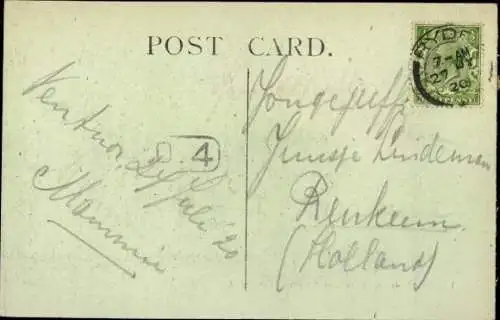 POST CARD.
RYDE
7- AM
27 JY
20
Ventnor, 24 Juli '20
Mammie
4
Jongejuffr
Juusje Lindeman
Renkum
(Holland)